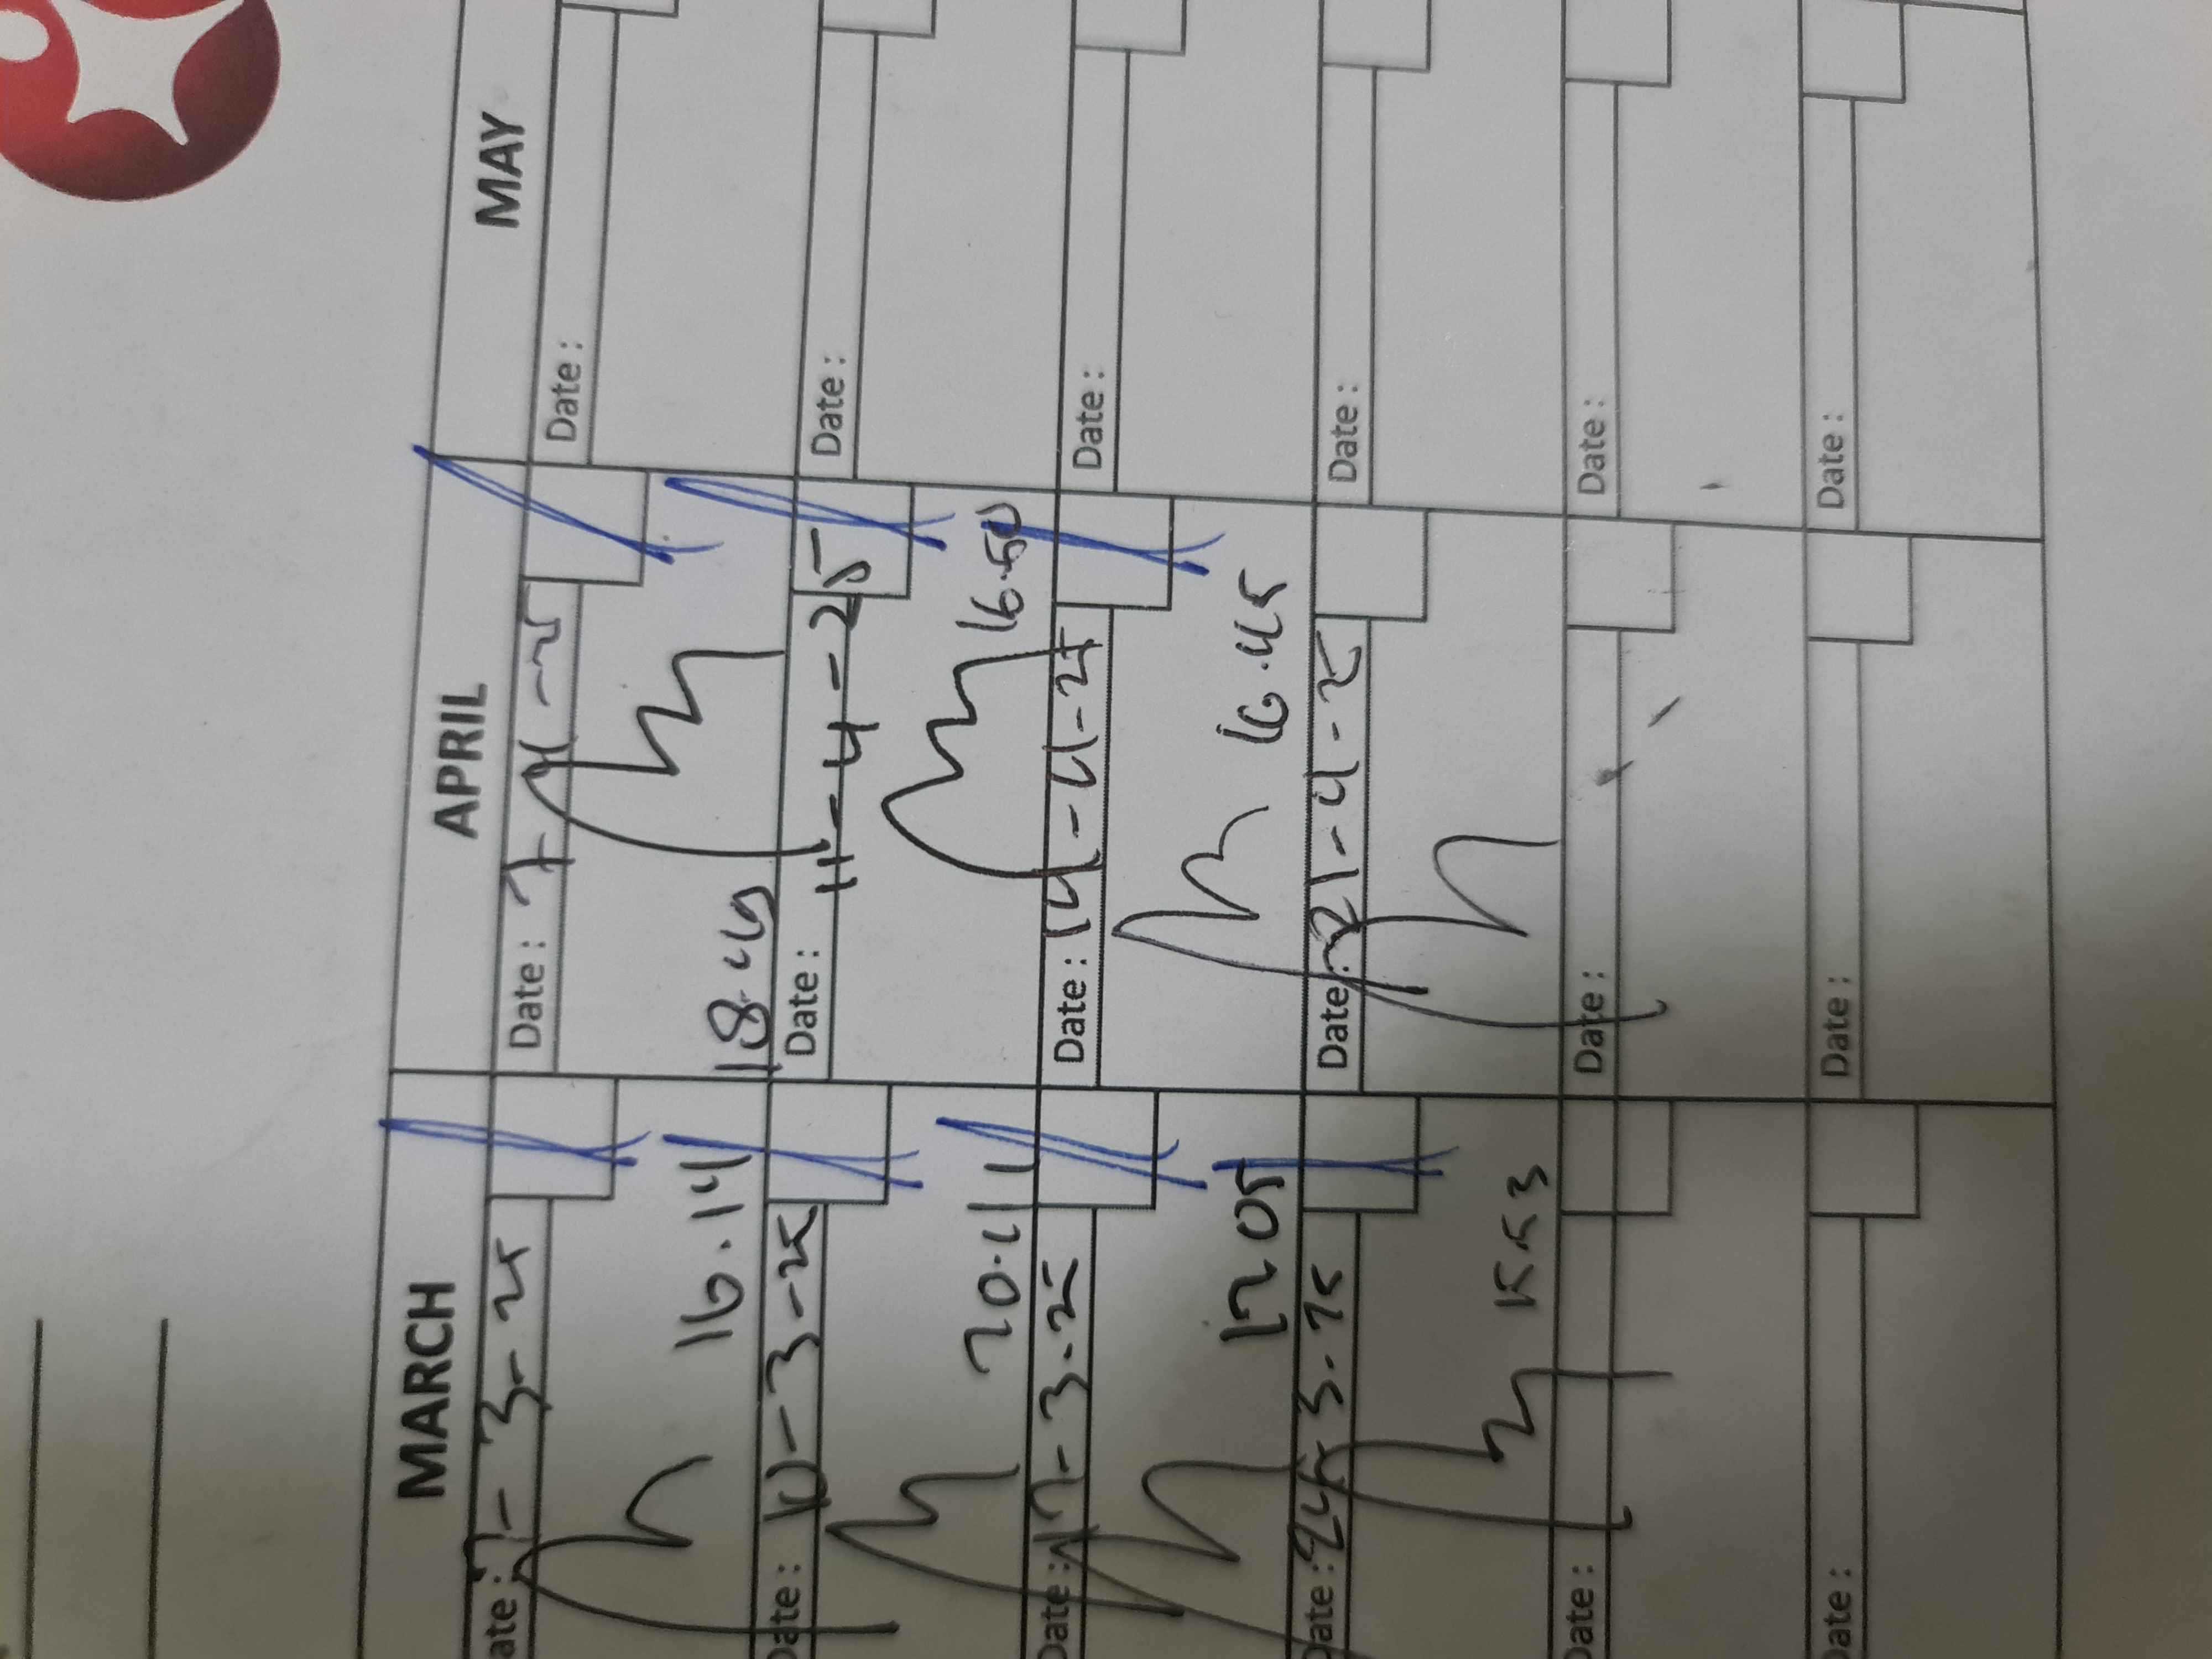 MARCH APRIL MAY
Date: 7-3-25
16.14
Date: 10-3-25
20.11
Date: 17-3-25
17.05
Date: 24-3-25
15.53
Date:
Date:
Date: 7-4-25
18.49
Date: 11-4-25
16.50
Date: 14-4-25
16.45
Date: 21-4-25
Date:
Date:
Date:
Date:
Date:
Date:
Date:
Date: